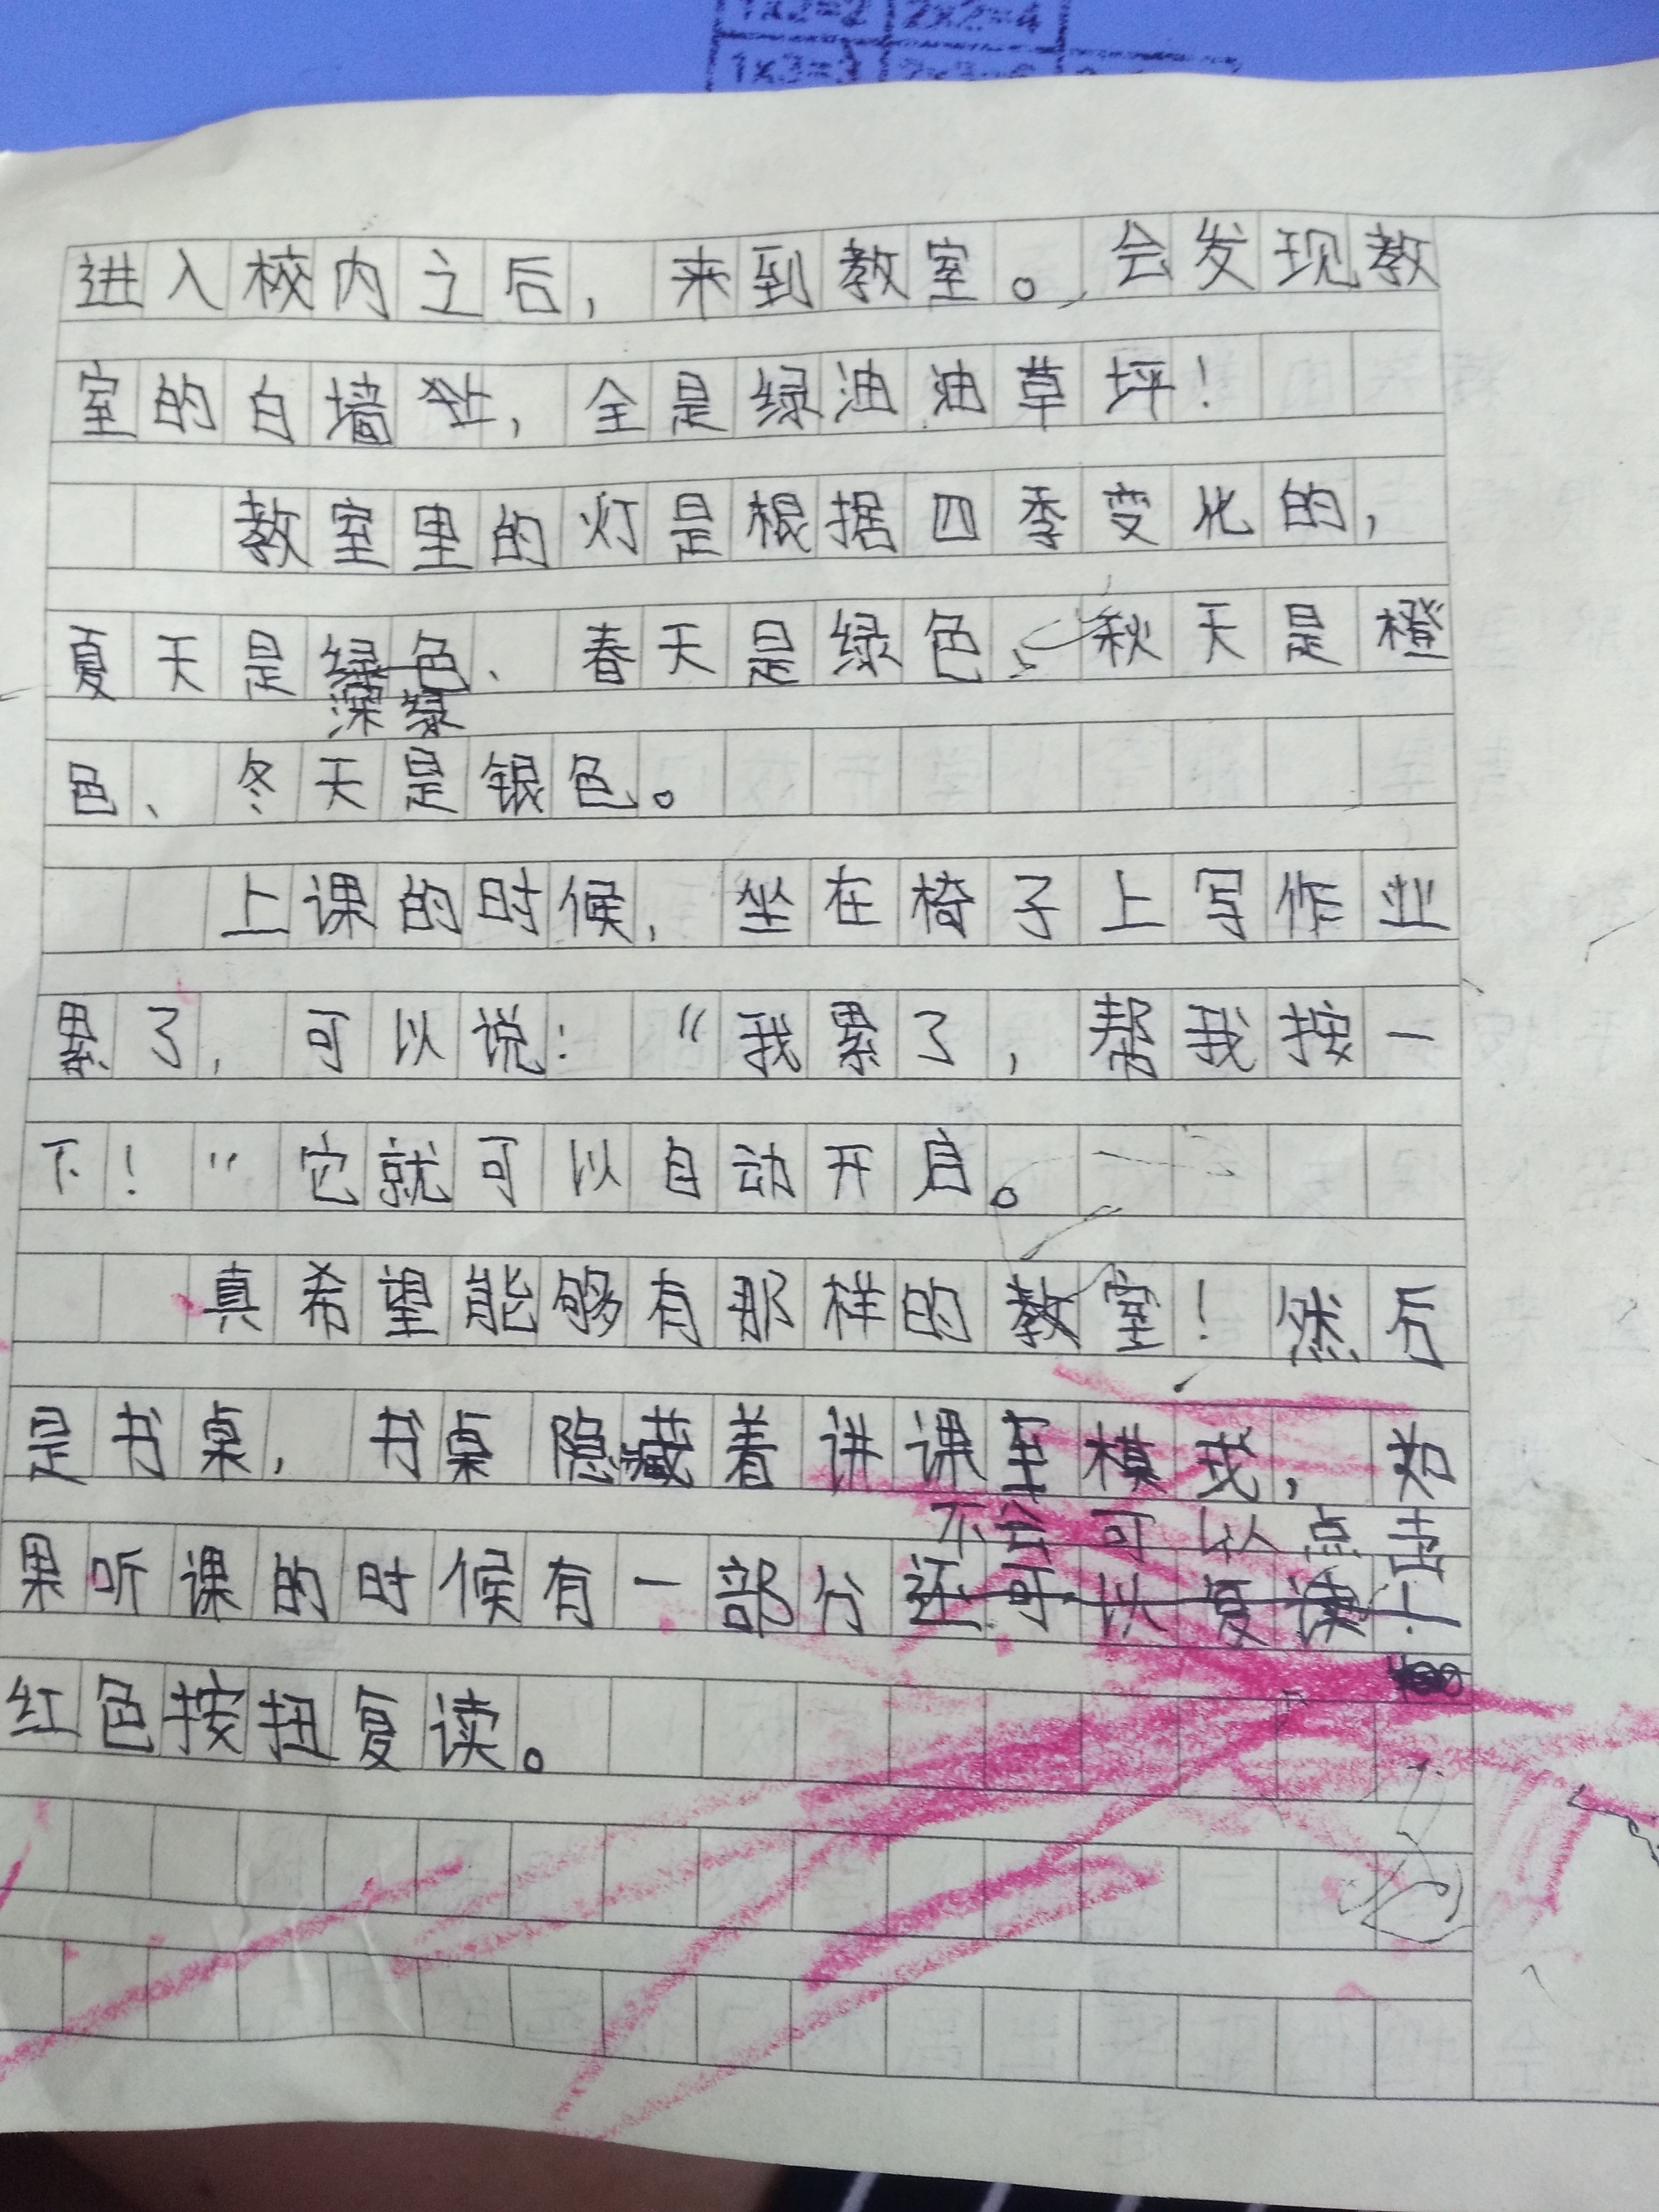 1×2=2 2×2=4
1×3=3 2×3=6
进入校内之后,来到教室。会发现教
室的白墙,全是绿油油草坪!
教室里的灯是根据四季变化的,
夏天是绿色、春天是绿色、秋天是橙
深绿
色、冬天是银色。
上课的时候,坐在椅子上写作业
累了,可以说:“我累了,帮我按一
下!”它就可以自动开启。
真希望能够有那样的教室!然后
是书桌,书桌隐藏着讲课至模式,如
不会可以点击
果听课的时候有一部分还可以复读上
红色按扭复读。